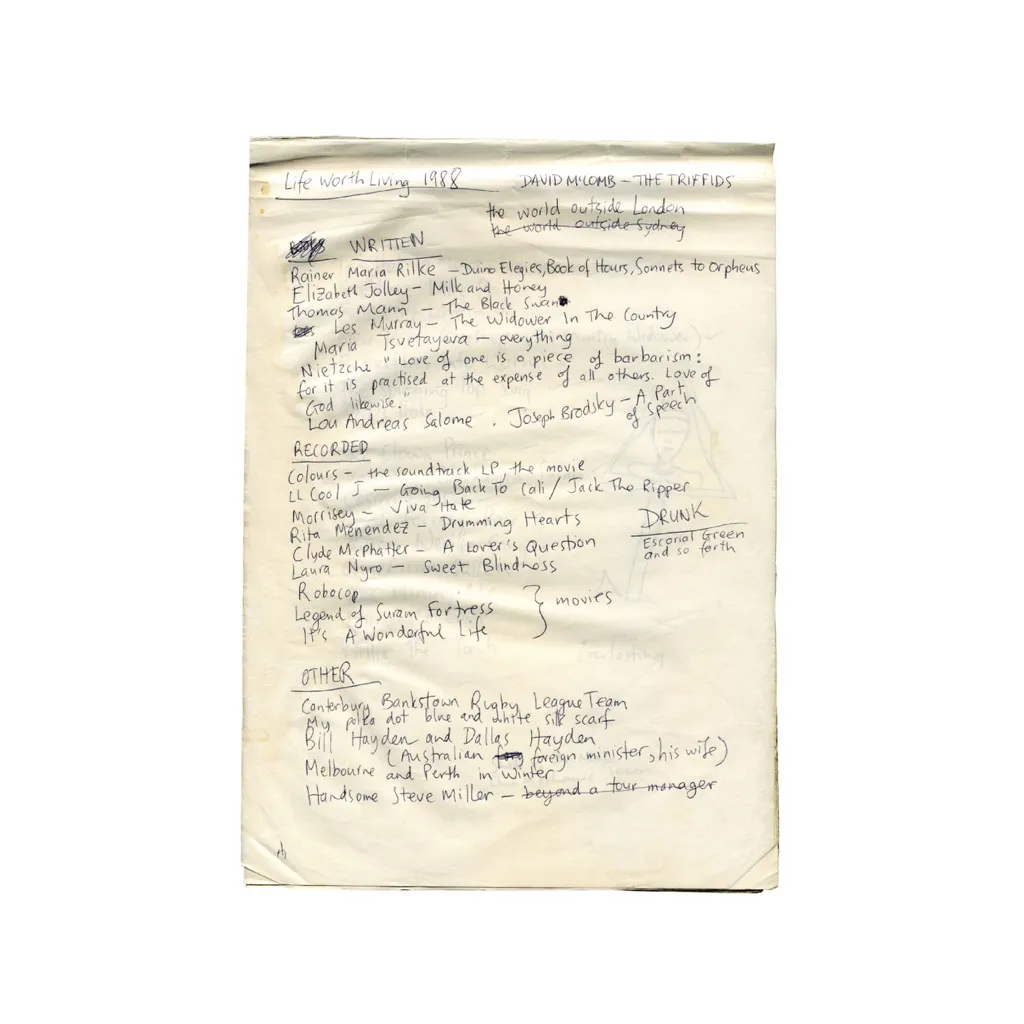 Life Worth Living 1988
DAVID McCOMB – THE TRIFFIDS
the world outside London
the world outside Sydney
WRITTEN
Rainer Maria Rilke – Duino Elegies, Book of Hours, Sonnets to Orpheus
Elizabeth Jolley – Milk and Honey
Thomas Mann – The Black Swan
Les Murray – The Widower In The Country
Maria Tsvetayeva – everything
Nietzche "Love of one is a piece of barbarism:
for it is practised at the expense of all others. Love of
God likewise."
Lou Andreas Salome . Joseph Brodsky – A Part
of Speech
RECORDED
Colours – the soundtrack LP, the movie
LL Cool J – Going Back To Cali / Jack The Ripper
Morrisey – Viva Hate
Rita Menendez – Drumming Hearts
Clyde McPhatter – A Lover's Question
Laura Nyro – Sweet Blindness
DRUNK
Escorial Green
and so forth
Robocop
Legend of Suram Fortress
It's A Wonderful Life
} movies
OTHER
Canterbury Bankstown Rugby League Team
My polka dot blue and white silk scarf
Bill Hayden and Dallas Hayden
(Australian foreign minister, his wife)
Melbourne and Perth in Winter
Handsome Steve Miller – beyond a tour manager